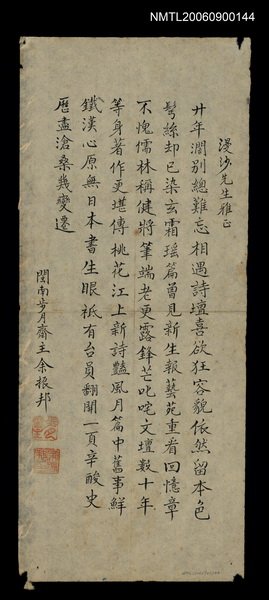 NMTL20060900144
漫沙先生雅正
廿年濶別總難忘相遇詩壇喜欲狂容貌依然留本色
髩絲却已染玄霜瑶篇曾見新生報藝苑重看回憶章
不愧儒林稱健將筆端老更露鋒芒叱咤文壇數十年
等身著作更堪傳桃花江上新詩豔風月篇中舊事鮮
鐵漢心原無日本書生眼祗有台員翻開一頁辛酸史
歷盡滄桑幾變遷
閩南步月齋主余根邦